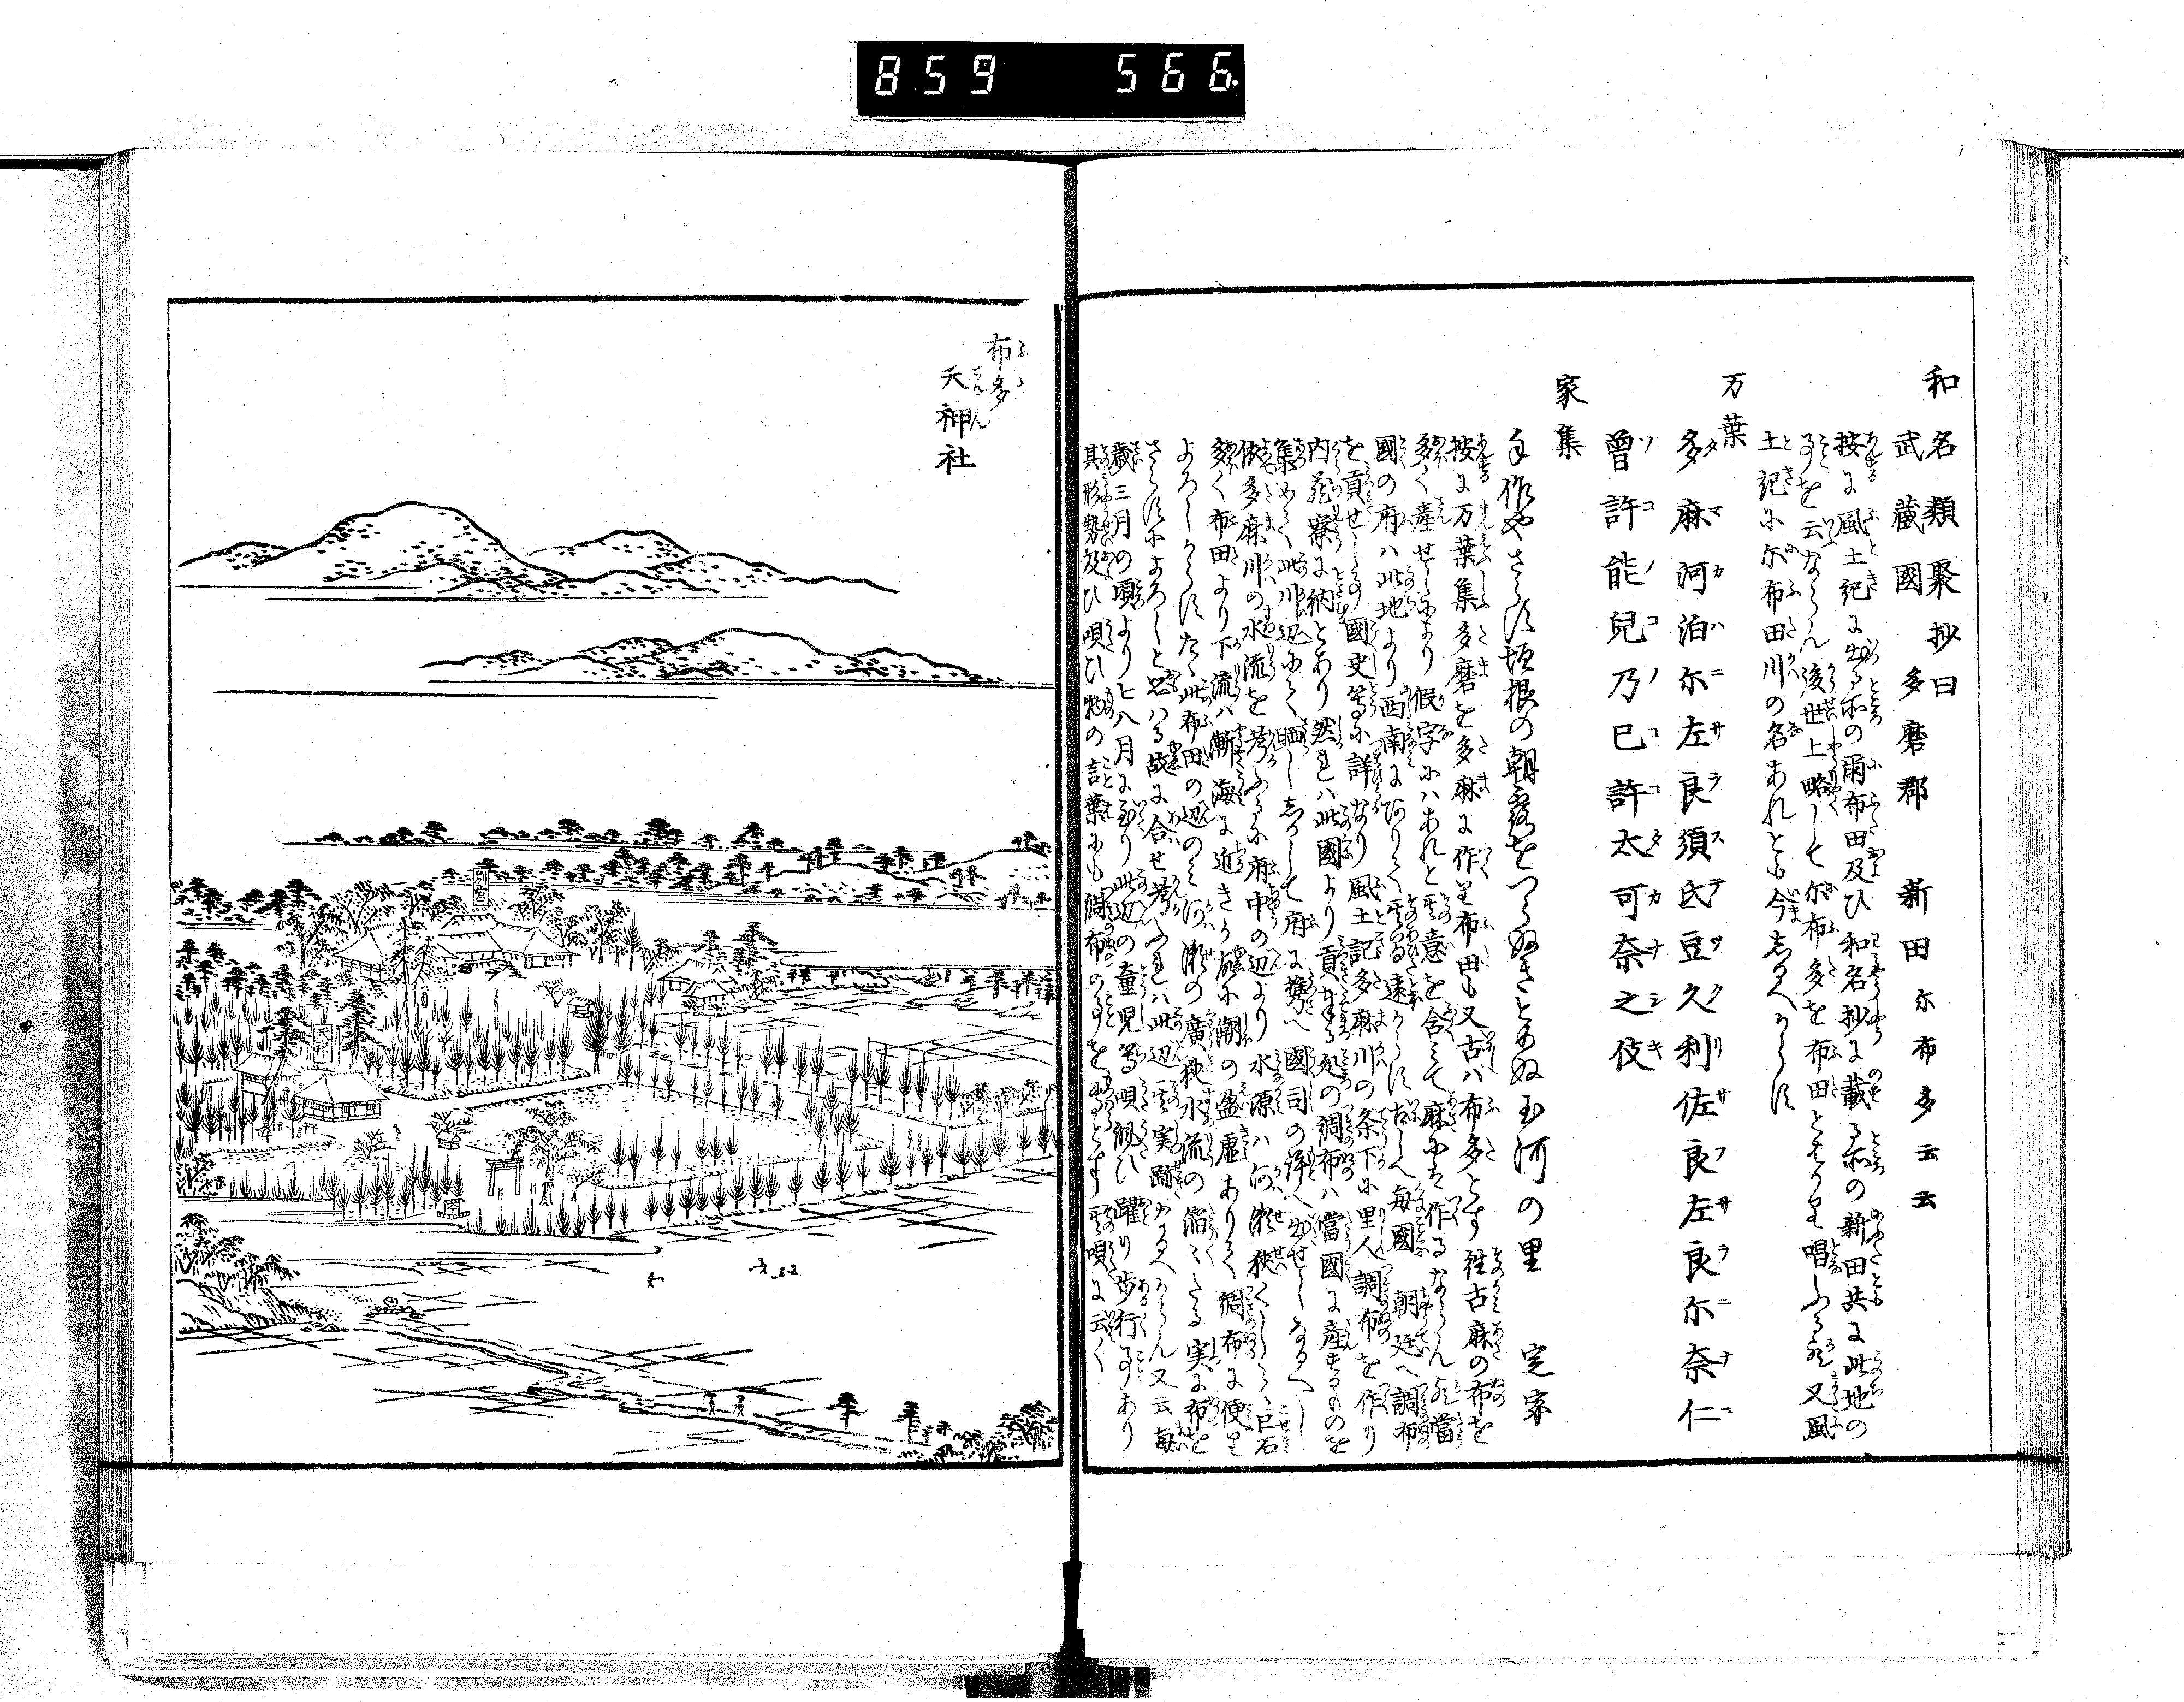 859 566.
和名類聚抄曰
武藏國 多磨郡 新田 尓布多云云
按に風土記に出る所の爾布田及ひ和名抄に載る所の新田共に此地の
事を云ならん後世上略して尓布多を布田とはかり唱ふる歟又風
土記に尓布田川の名あれとも今しるへからす
万葉
多麻河泊尓左良須氐豆久利佐良左良尓奈仁
曾許能兒乃已許太可奈之伎
家集
手作やさらす垣根の朝露をつらぬきとめぬ玉河の里 定家
按に万葉集多磨を多麻に作り布田も又古ハ布多とす往古麻の布を
多く産せしにより假字にハあれと其意を含みて麻に作るならん歟當
國の府ハ此地より西南にありて其間遠からす古しへ毎國 朝廷へ調布
を貢せし事國史等に詳なり風土記多麻川の条下に里人調布を作り
内藏寮に納とあり然れハ此國より貢する処の調布ハ當國に産するものを
集めて此川辺にて晒しあるして府に携へ國司の許へ出せしなるへし
依多麻川の水流を考ふるに府中の辺より水源ハ河瀬狭くしてして巨石
多く布田より下流ハ漸海に近きか故に潮の盈虚ありて調布に便り
よろしからすたゝ此布田の辺のミ河瀬の廣狭水流の滔々たる実に布を
さらすによろしと思ハる故に合せ考ふれハ此辺其実蹟なるへからん又云毎
歳三月の頃より七八月に至り此辺の童児等唄諷ひ躍り歩行事あり
其形勢及ひ唄ひ物の言葉にも調布の事を専とす其唄に云く
布多
天神社
別當
天神